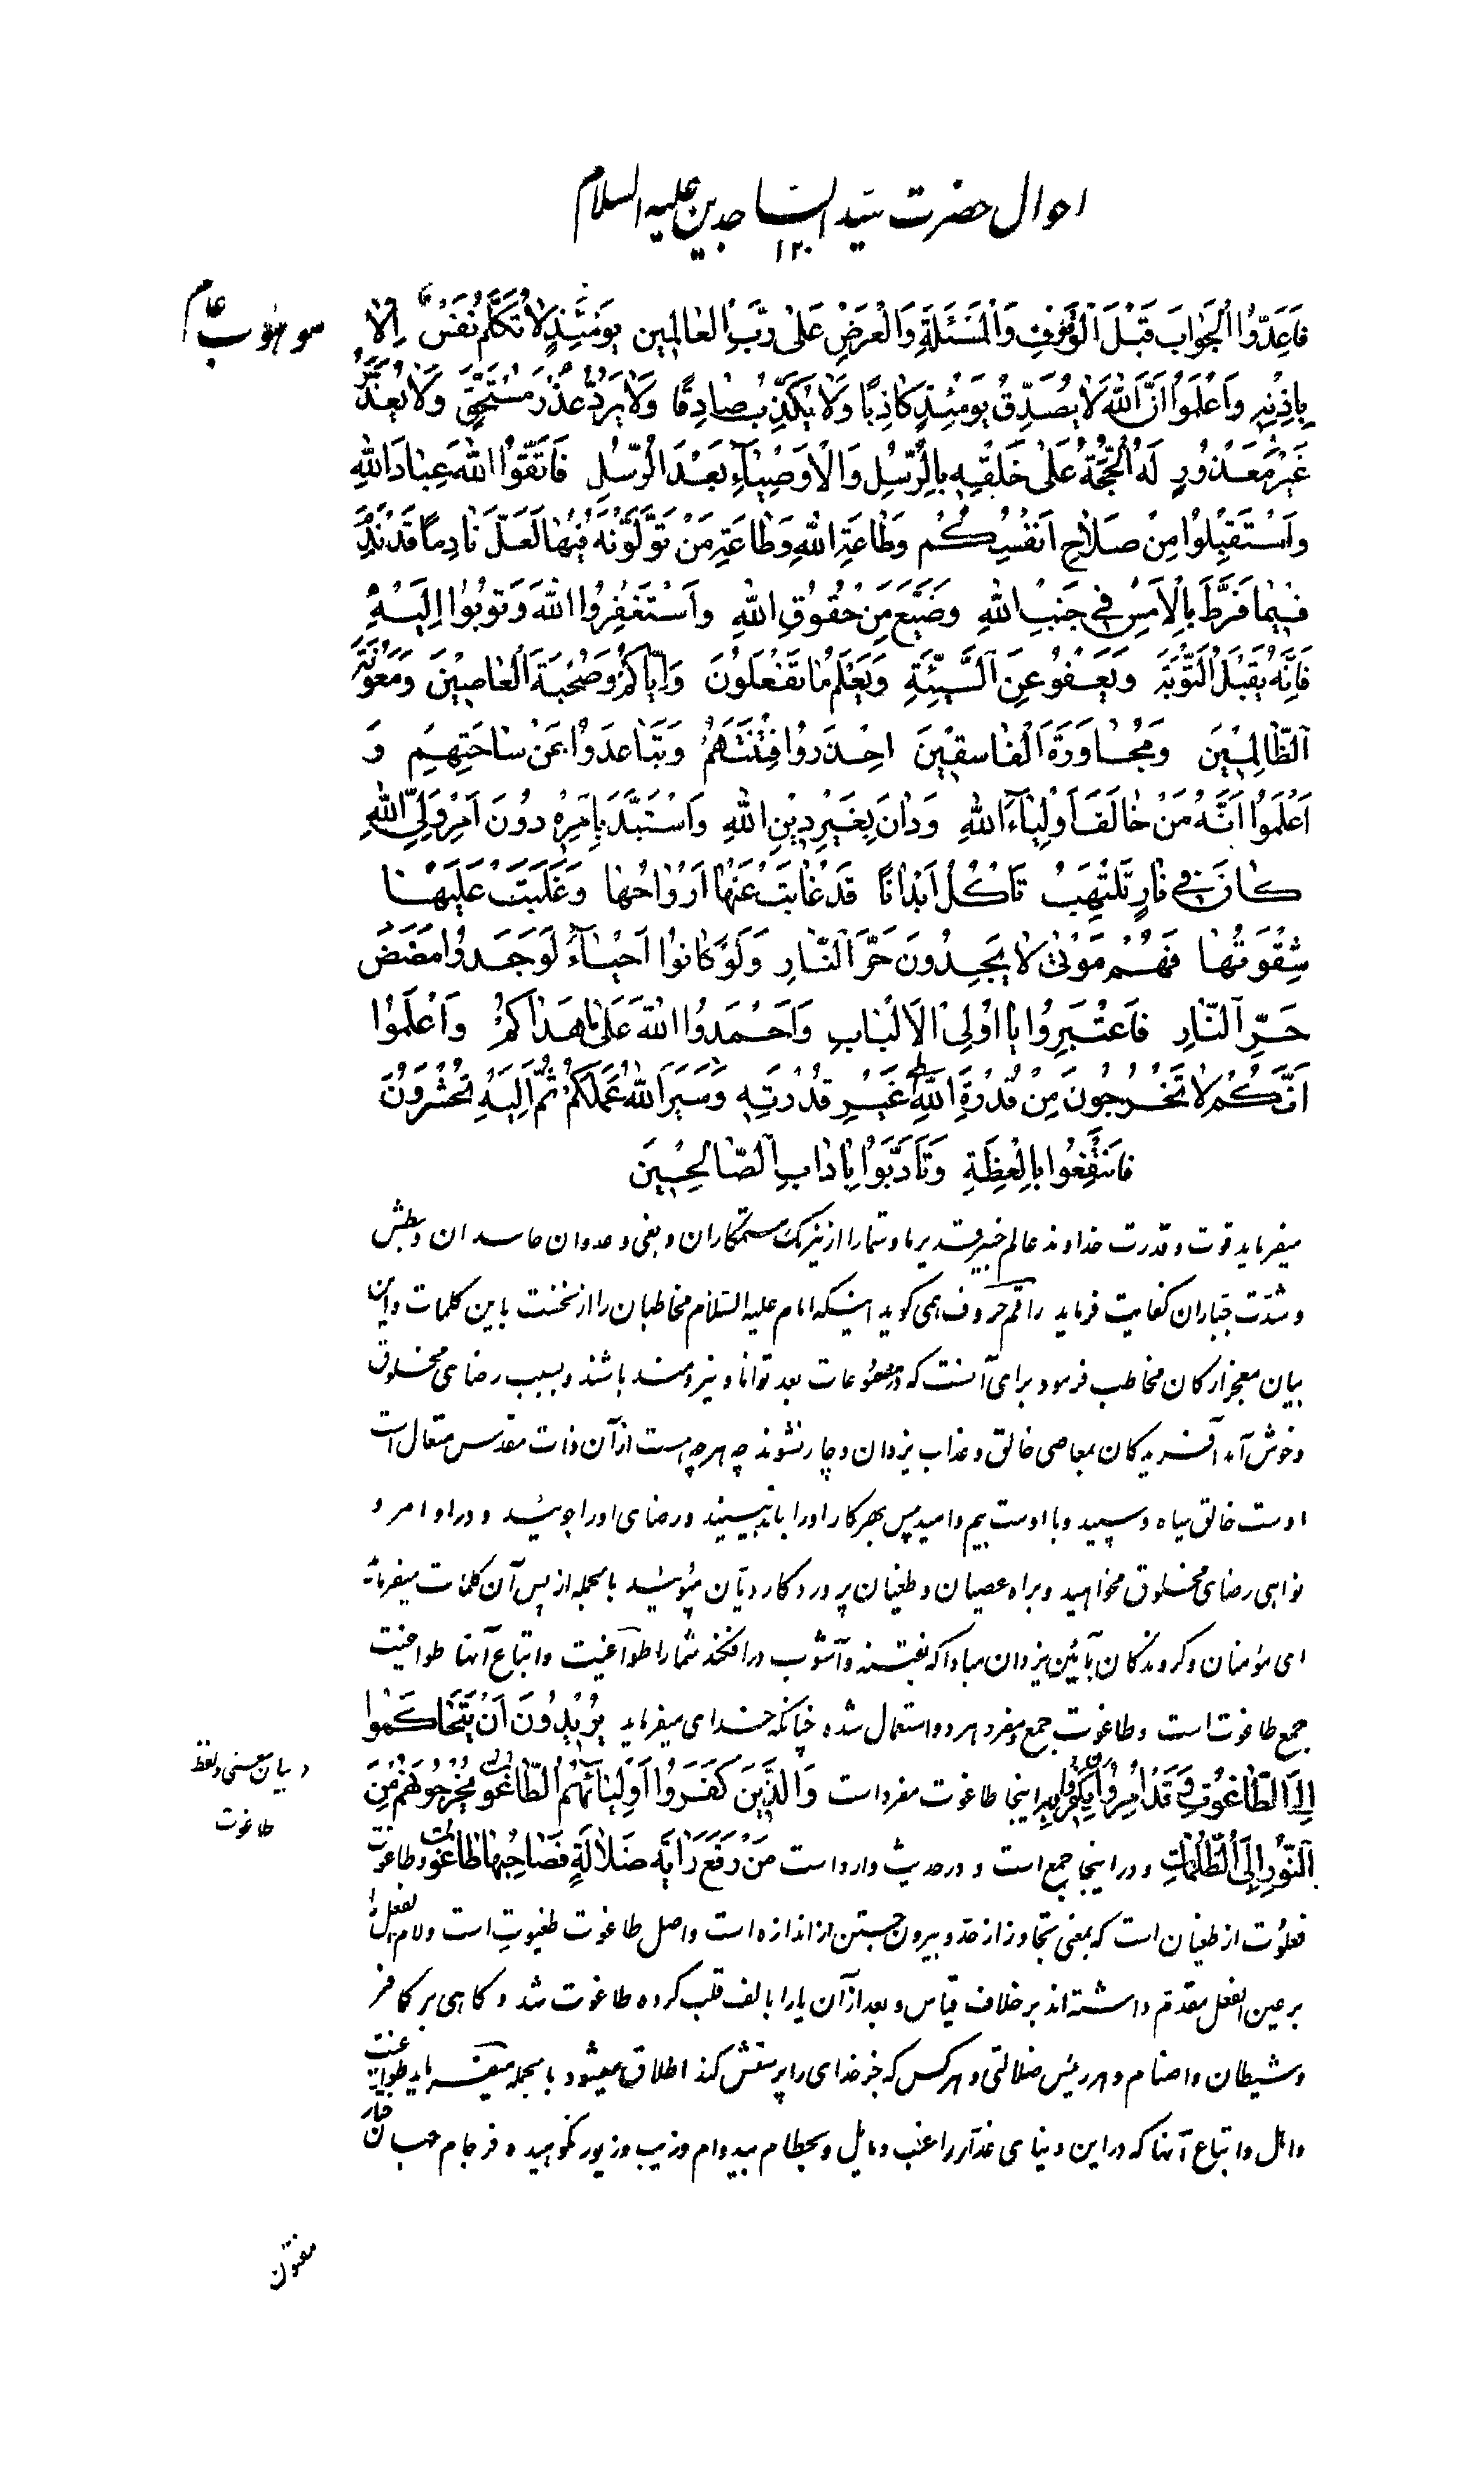 احوال حضرت سید الساجدین علیه السلام
۱۳۰
فَاَعِدُّوا الْجَوابَ قَبْلَ الْوُقُوفِ وَالْمَسْئَلَةِ وَالْعَرْضِ عَلىٰ رَبِّ الْعٰالَمِین یَوْمَئِذٍ لٰا تَكَلَّمُ نَفْسٌ اِلّا
بِاِذْنِهِ وَاعْلَمُوا اَنَّ اللهَ لٰا یُصَدِّقُ یَوْمَئِذٍ كٰاذِبًا وَلٰا یُكَذِّبُ صٰادِقًا وَلٰا یَرُدُّ عُذْرَ مُسْتَحِقٍّ وَلٰا یُعْذِرُ
غَیْرَ مَعْذُورٍ لَهُ الْحُجَّةُ عَلىٰ خَلْقِهِ بِالرُّسُلِ وَالْاَوْصِیٰاءِ بَعْدَ الرُّسُلِ فَاتَّقُوا اللهَ عِبٰادَ اللهِ
وَاسْتَقْبِلُوا مِنْ صَلٰاحِ اَنْفُسِكُمْ وَطٰاعَةِ اللهِ وَطٰاعَةِ مَنْ تَوَلَّوْنَهُ فیهٰا لَعَلَّ نٰادِمًا قَدْ نَدِمَ
فیمٰا فَرَّطَ بِالْاَمْسِ فی جَنْبِ اللهِ وَضَیَّعَ مِنْ حُقُوقِ اللهِ وَاسْتَغْفِرُوا اللهَ وَتُوبُوا اِلَیْهِ
فَاِنَّهُ یَقْبَلُ التَّوْبَةَ وَیَعْفُو عَنِ السَّیِّئَةِ وَیَعْلَمُ مٰا تَفْعَلُونَ وَاِیّٰاكُمْ وَصُحْبَةَ الْعٰاصینَ وَمَعُونَةَ
الظّٰالِمینَ وَمُجٰاوَرَةَ الْفٰاسِقینَ احْذَرُوا فِتْنَتَهُمْ وَتَبٰاعَدُوا عَنْ سٰاحَتِهِمْ وَ
اعْلَمُوا اَنَّهُ مَنْ خٰالَفَ اَوْلِیٰاءَ اللهِ وَدٰانَ بِغَیْرِ دینِ اللهِ وَاسْتَبَدَّ بِاَمْرِهِ دُونَ اَمْرِ وَلِیِّ اللهِ
كٰانَ فی نٰارٍ تَلْتَهِبُ تَاْكُلُ اَبْدٰانًا قَدْ غٰابَتْ عَنْهٰا اَرْوٰاحُهٰا وَغَلَبَتْ عَلَیْهٰا
شِقْوَتُهٰا فَهُمْ مَوْتىٰ لٰا یَجِدُونَ حَرَّ النّٰارِ وَلَوْ كٰانُوا اَحْیٰاءً لَوَجَدُوا مَضَضَ
حَرِّ النّٰارِ فَاعْتَبِرُوا یٰا اُولِی الْاَلْبٰابِ وَاحْمَدُوا اللهَ عَلىٰ مٰا هَدٰاكُمْ وَاعْلَمُوا
اَنَّكُمْ لٰا تَخْرُجُونَ مِنْ قُدْرَةِ اللهِ اِلىٰ غَیْرِ قُدْرَتِهِ وَسَیَرَى اللهُ عَمَلَكُمْ ثُمَّ اِلَیْهِ تُحْشَرُونَ
فَانْتَفِعُوا بِالْعِظَةِ وَتَاَدَّبُوا بِآدٰابِ الصّٰالِحینَ
میفرماید قوت و قدرت خداوند عالم خبیر قدیر ما و شما را از نیرنگ ستمکاران و بغی و عدوان حاسدان و بطش
و شدّت جباران کفایت فرماید راقم حروف همی گوید اینکه امام علیه السّلام مخاطبان را از نخست باین کلمات و این
بیان معجز ارکان مخاطب فرمود برای آنست که در مصنوعات بعد توانا و نیرومند باشند و بسبب رضای مخلوق
و خوش آمد آفریدگان بمعاصی خالق و عذاب یزدان دچار نشوند چه هرچه هست از آن ذات مقدس متعال است
اوست خالق سیاه و سپید و با اوست بیم و امید پس بهر کار او را باید ببینید و رضای او را جوئید و در اوامر و
نواهی رضای مخلوق مخواهید و براه عصیان و طغیان پروردگار دیّان مپوئید بالجمله از پس آن کلمات میفرماید
ای مؤمنان و گروندگان بآئین یزدان مبادا که بفتنه و آشوب درافکند شما را طواغیت و اتباع آنها طواغیت
جمع طاغوت است و طاغوت جمع و مفرد هر دو استعمال شده چنانکه خدای میفرماید یُریدُونَ اَنْ یَتَحٰاكَمُوا
اِلَى الطّٰاغُوتِ وَ قَدْ اُمِرُوا اَنْ یَكْفُرُوا بِهِ اینجا طاغوت مفرد است وَالَّذینَ كَفَرُوا اَوْلِیٰائُهُمُ الطّٰاغُوتُ یُخْرِجُونَهُمْ مِنَ
النُّورِ اِلَى الظُّلُمٰاتِ و در اینجا جمع است و در حدیث وارد است مَنْ رَفَعَ رٰایَةَ ضَلٰالَةٍ فَصٰاحِبُهٰا طٰاغُوت و طاغوت
فعلوت از طغیان است که بمعنی تجاوز از حدّ و بیرون جستن از اندازه است و اصل طاغوت طغیوت است و لام الفعل را
بر عین الفعل مقدم داشته‌اند بر خلاف قیاس و بعد از آن یا را بالف قلب کرده طاغوت شد و گاهی بر کافر
و شیطان و اصنام و هر رئیس ضلالتی و هر کس که جز خدای را پرستش کند اطلاق میشود بالجمله میفرماید طواغیت
و اتباع آنها که در این دنیای غدّار راغب و مایل و بحطام بیدوام و زیب و زیور نکوهیده فرجام
در بیان معنی و لفظ
طاغوت
مفتون